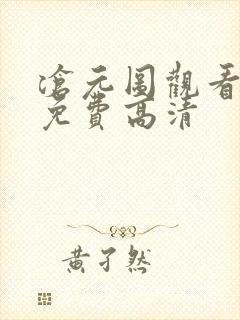 滄元圖觀看
免費高清
黃孑然